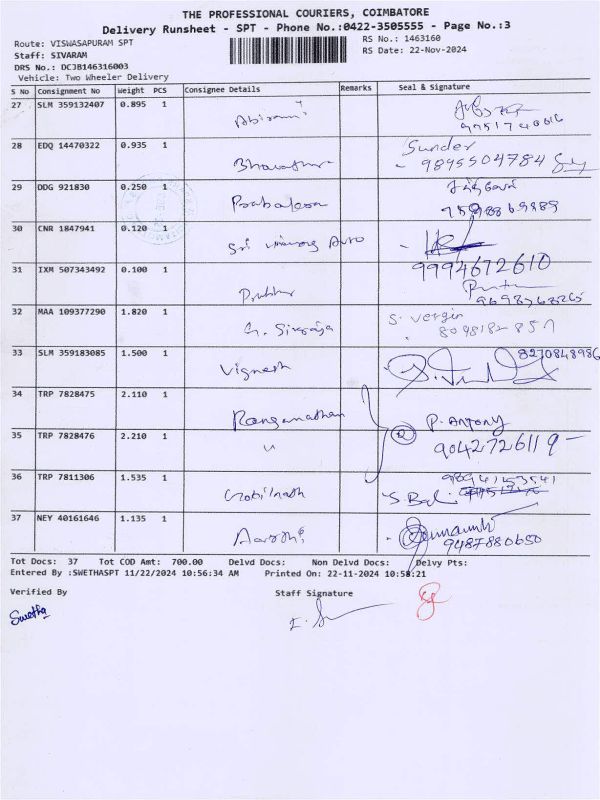 THE PROFESSIONAL COURIERS, COIMBATORE
Delivery Runsheet - SPT - Phone No.:0422-3505555 - Page No.:3
Route: VISWASAPURAM SPT
RS No.: 1463160
Staff: SIVARAM
RS Date: 22-Nov-2024
DRS No.: DCJB146316003
Vehicle: Two Wheeler Delivery
S No Consignment No Weight PCS Consignee Details Remarks Seal & Signature
27 SLM 359132407 0.895 1 Abirami
28 EDQ 14470322 0.935 1 Sunder
9845504784
29 DDG 921830 0.250 1 சக்திவேல்
30 CNR 1847941 0.120 1 Sri Auto
9994672610
31 IXM 507343492 0.100 1
32 MAA 109377290 1.820 1 G. Sivaraja S. Vergin
33 SLM 359183085 1.500 1 Vignesh 8270848986
34 TRP 7828475 2.110 1 Ranganathan P. ANTONY
35 TRP 7828476 2.210 1 " 9042726119
36 TRP 7811306 1.535 1 Gobilnath
37 NEY 40161646 1.135 1 Aarthi
9487880650
Tot Docs: 37 Tot COD Amt: 700.00 Delvd Docs: Non Delvd Docs: Delvy Pts:
Entered By :SWETHASPT 11/22/2024 10:56:34 AM Printed On: 22-11-2024 10:58:21
Verified By Staff Signature
Swetha